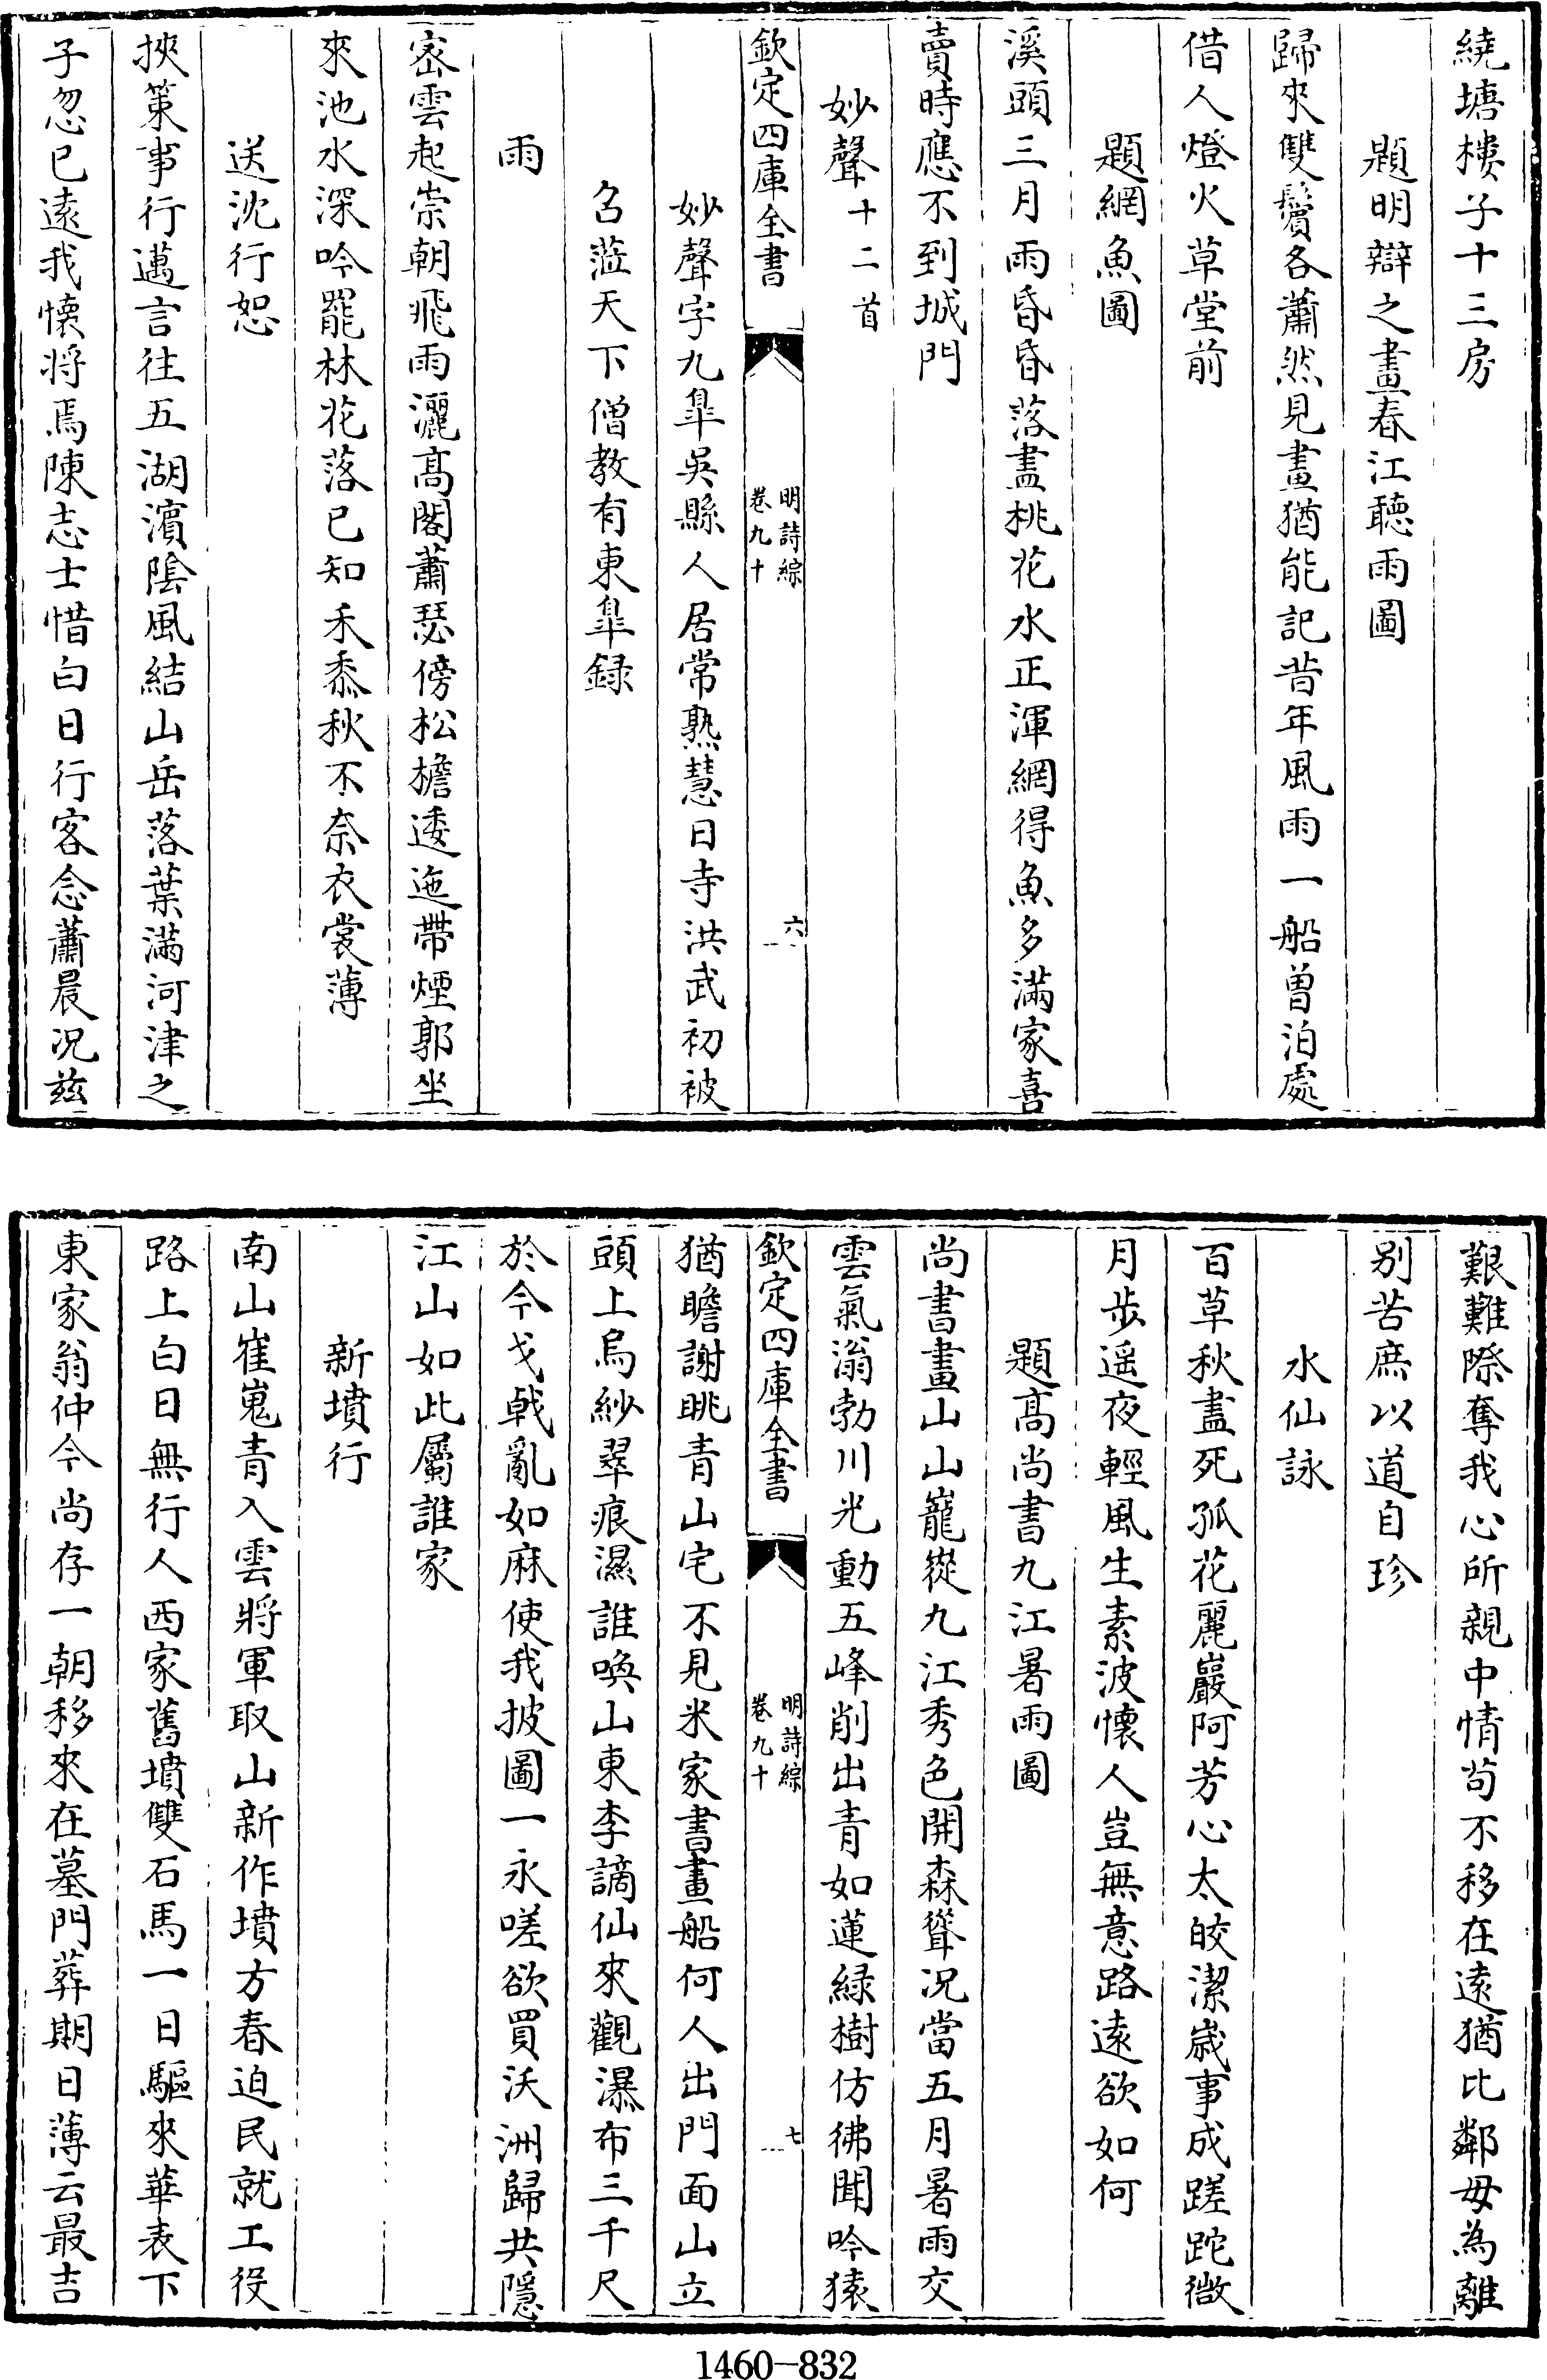 繞塘樓子十三房
題明辯之畫春江聽雨圖
歸來雙鬢各蕭然見畫猶能記昔年風雨一船曾泊處
借人燈火草堂前
題網魚圖
溪頭三月雨昏昏落盡桃花水正渾網得魚多滿家喜
賣時應不到城門
妙聲十二首
欽定四庫全書
明詩綜
卷九十
六
妙聲字九臯吳縣人居常熟慧日寺洪武初被
召蒞天下僧教有東臯録
雨
宻雲起崇朝飛雨灑髙閣蕭瑟傍松檐逶迤帶煙郭坐
來池水深吟罷林花落已知禾黍秋不奈衣裳薄
送沈行恕
挾策事行邁言往五湖濱隂風結山岳落葉滿河津之
子忽已逺我懐将焉陳志士惜白日行客念蕭晨况兹
艱難際奪我心所親中情茍不移在逺猶比鄰毋為離
别苦庶以道自珍
水仙詠
百草秋盡死孤花麗巖阿芳心太皎潔嵗事成蹉跎微
月步遥夜輕風生素波懐人豈無意路逺欲如何
題髙尚書九江暑雨圖
尚書畫山山巃嵸九江秀色開森聳况當五月暑雨交
雲氣滃勃川光動五峰削出青如蓮緑樹仿彿聞吟猿
欽定四庫全書
明詩綜
卷九十
七
猶瞻謝眺青山宅不見米家書畫船何人出門面山立
頭上烏紗翠痕濕誰喚山東李謫仙來觀瀑布三千尺
於今戈㦸亂如麻使我披圖一永嗟欲買沃洲歸共隱
江山如此屬誰家
新墳行
南山崔嵬青入雲將軍取山新作墳方春迫民就工役
路上白日無行人西家舊墳雙石馬一日驅來華表下
東家翁仲今尚存一朝移來在墓門葬期日薄云最吉
1460—832